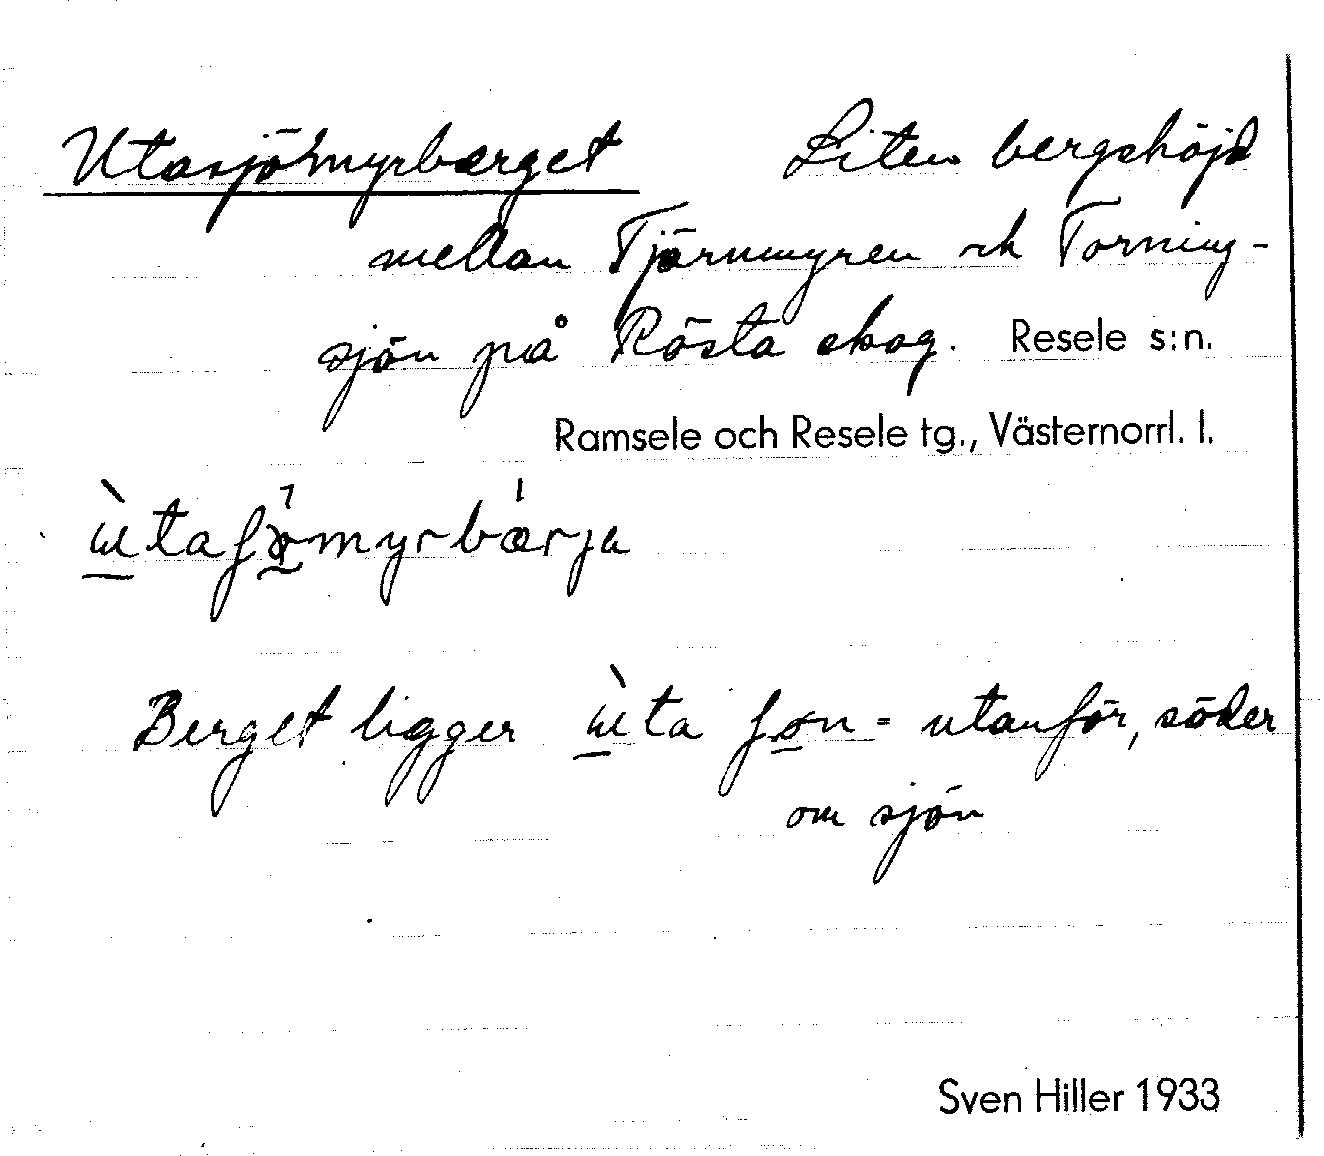 Utasjömyrberget Liten bergshöjd
mellan Tjärnmyren och Torning-
sjön på Rösta skog. Resele s:n.
Ramsele och Resele tg., Västernorrl. l.
Berget ligger ùta ʃøn = utanför, söder
om sjön
Sven Hiller 1933